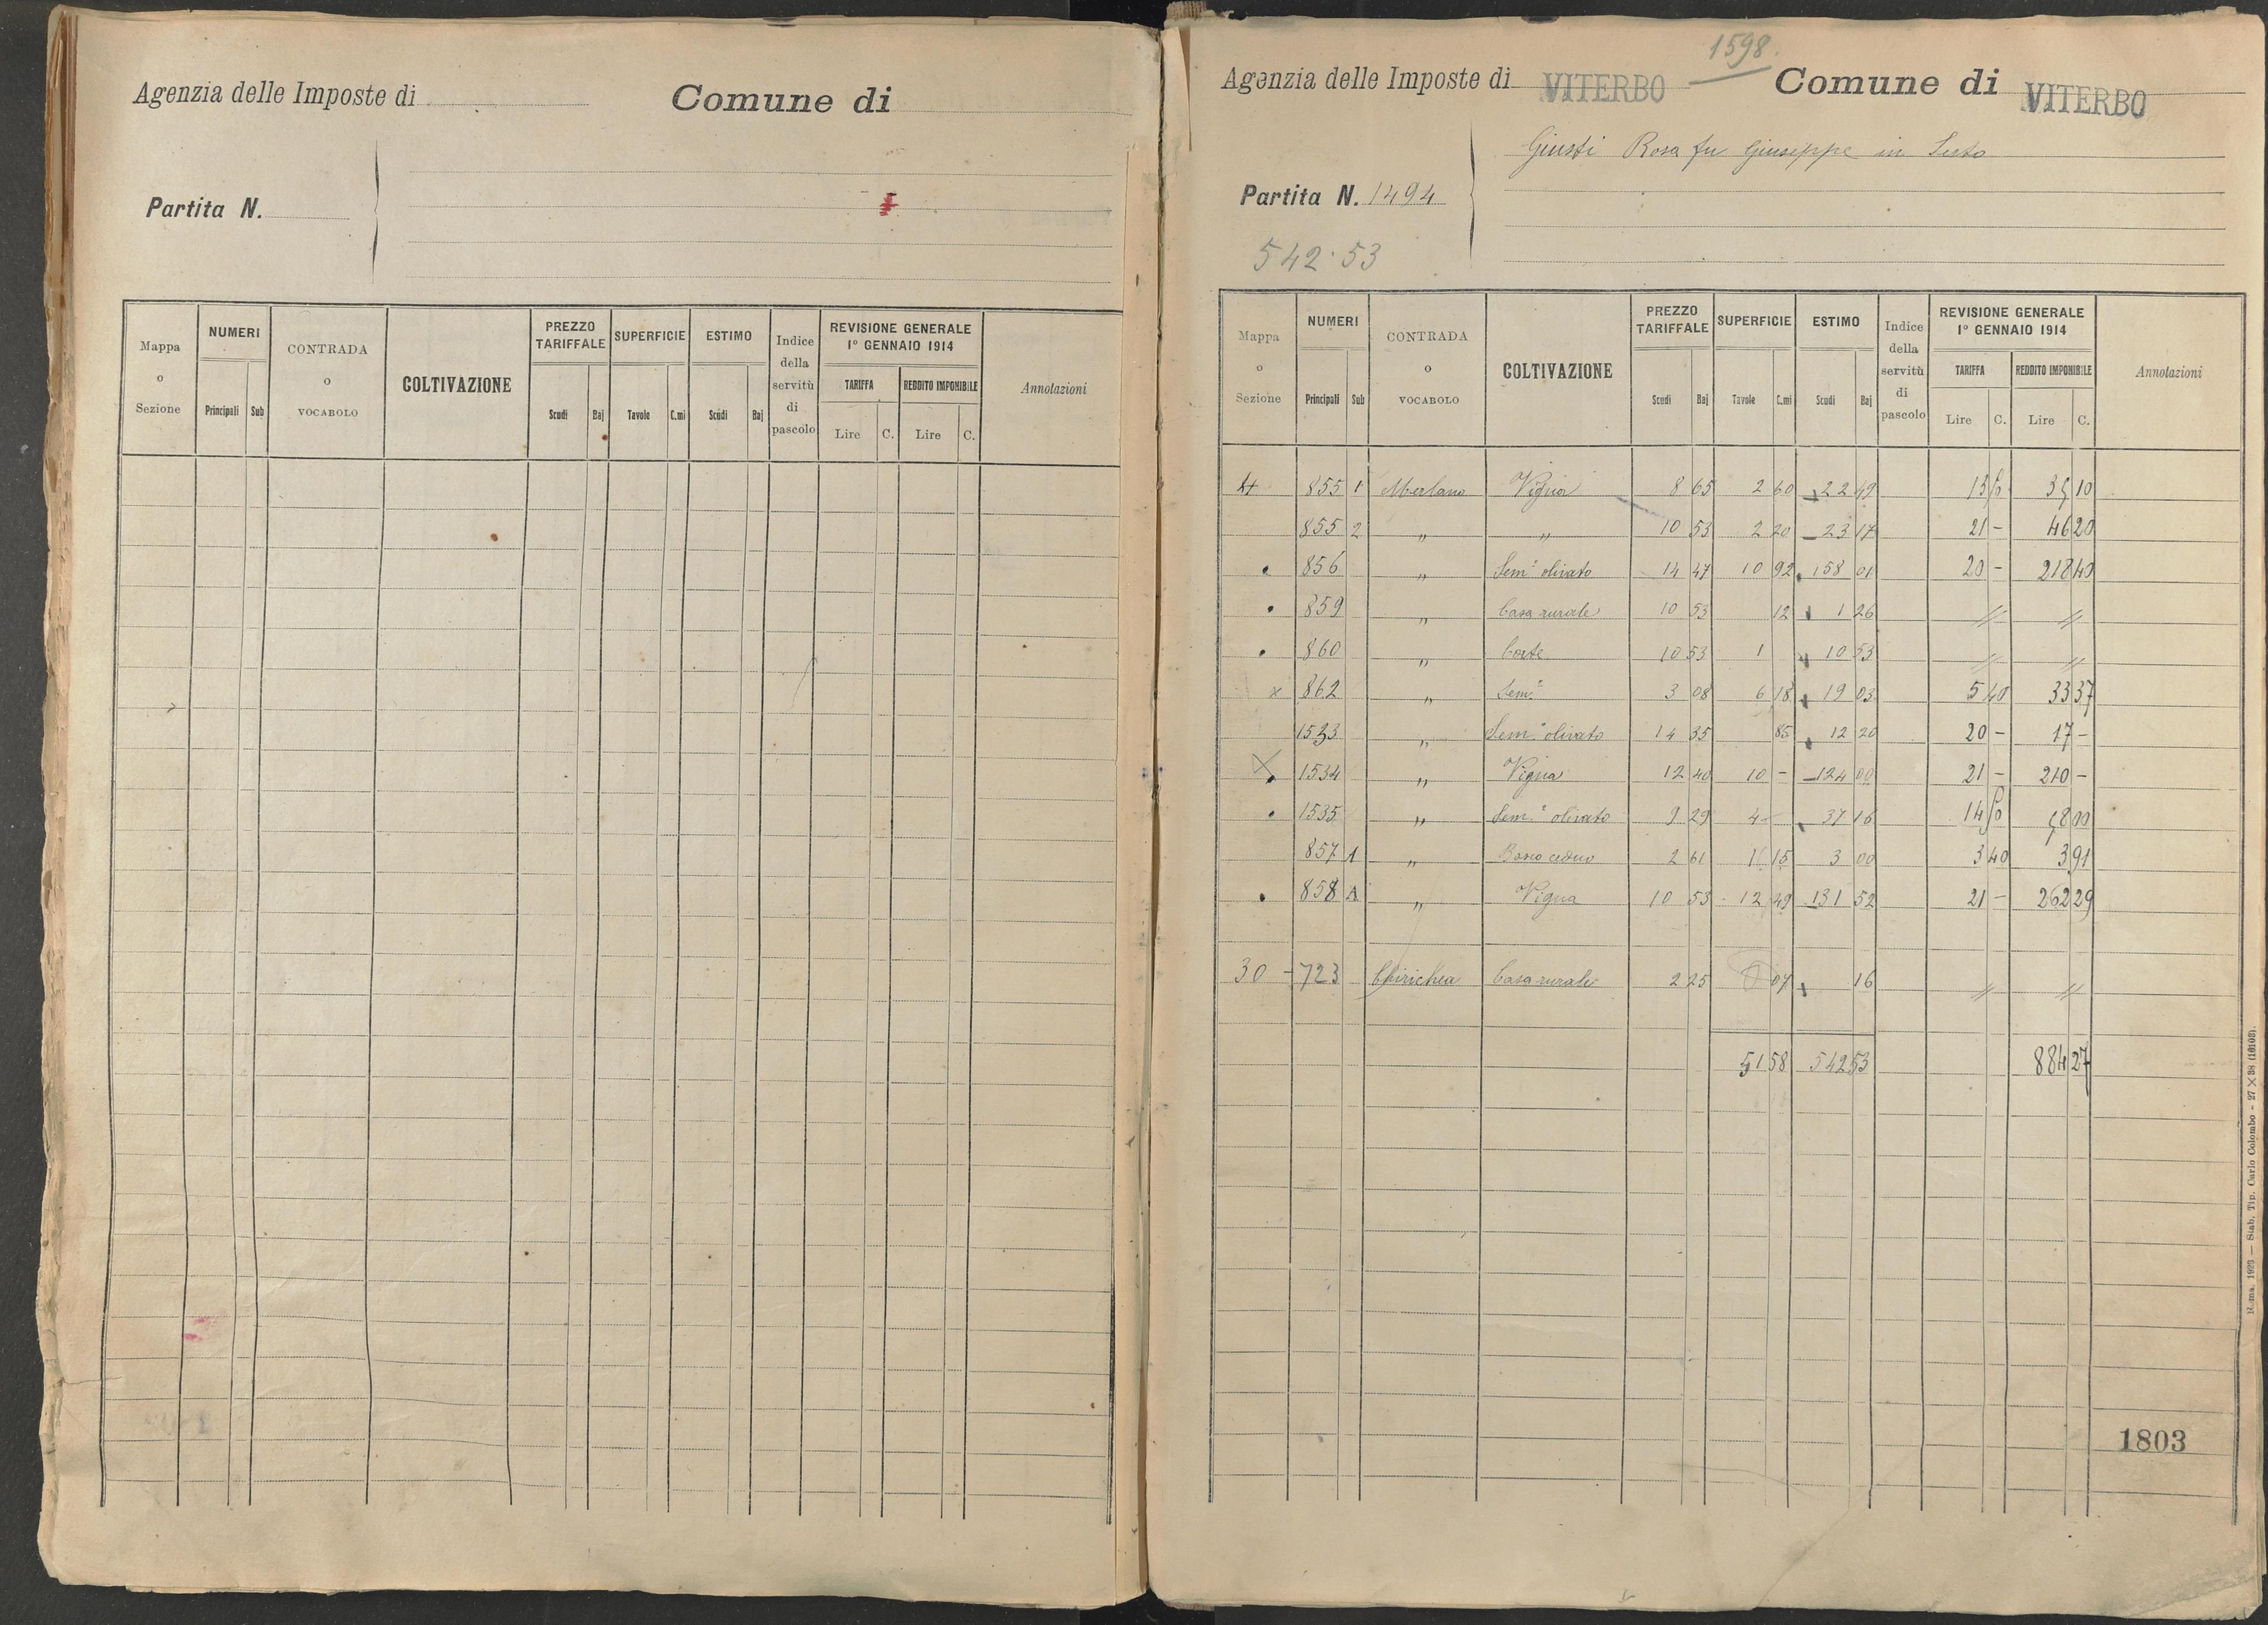 Agenzia delle Imposte di
Comune di
Partita N.
Mappa o Sezione
NUMERI
Principali Sub
CONTRADA o VOCABOLO
COLTIVAZIONE
PREZZO TARIFFALE
Scudi Baj
SUPERFICIE
Tavole C.mi
ESTIMO
Scudi Baj
Indice della servitù di pascolo
REVISIONE GENERALE 1° GENNAIO 1914
TARIFFA REDDITO IMPONIBILE
Lire C. Lire C.
Annotazioni
1598.
Agenzia delle Imposte di VITERBO Comune di VITERBO
Giusti Rosa fu Giuseppe in
Partita N. 1494
542.53
Mappa o Sezione
NUMERI
Principali Sub
CONTRADA o VOCABOLO
COLTIVAZIONE
PREZZO TARIFFALE
Scudi Baj
SUPERFICIE
Tavole C.mi
ESTIMO
Scudi Baj
Indice della servitù di pascolo
REVISIONE GENERALE 1° GENNAIO 1914
TARIFFA REDDITO IMPONIBILE
Lire C. Lire C.
Annotazioni
4 855 1 Merlano Vigna 8 65 2 60 22 49 13 50 35 10
855 2 " " 10 53 2 20 23 17 21 - 46 20
856 " Sem° olivato 14 47 10 92 158 01 20 - 218 40
859 " Casa rurale 10 53 12 1 26 " "
860 " Corte 10 53 1 10 53 " "
x 862 " Sem° 3 08 6 18 19 03 5 40 33 37
1533 " Sem° olivato 14 35 85 12 20 20 - 17 -
1534 " Vigna 12 40 10 - 124 00 21 - 210 -
1535 " Sem° olivato 9 29 4 - 37 16 14 50 58 00
857 1 " Bosco ceduo 2 61 1 15 3 00 3 40 3 91
858 " Vigna 10 53 12 49 131 52 21 - 262 29
30 - 723 Chirichea Casa rurale 2 25 07 16 " "
51 58 542 53 884 27
1803
Roma, 1923 — Stab. Tip. Carlo Colombo - 27 × 38 (16103).